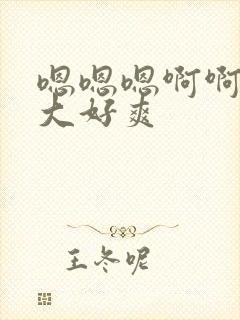 嗯嗯嗯啊啊
大好爽
王冬呢